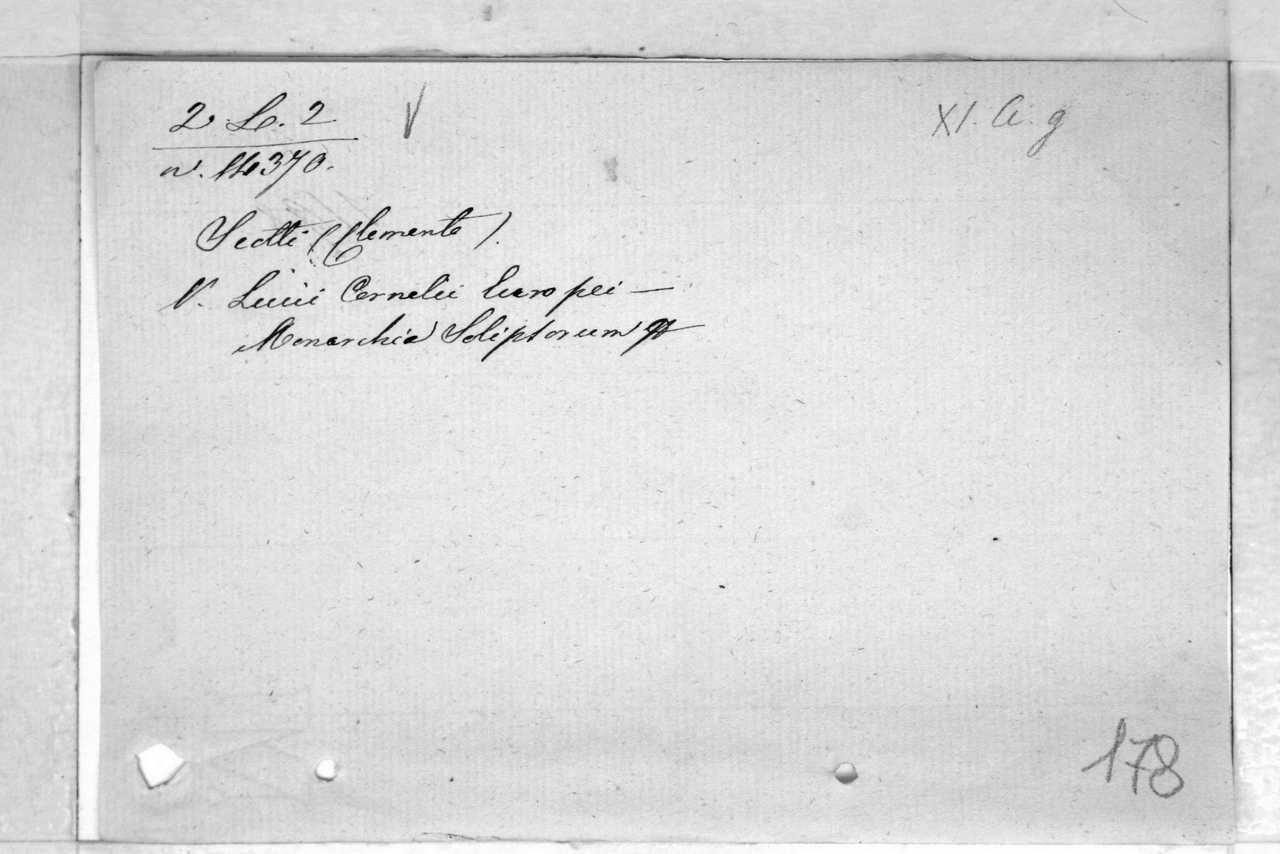 2. L. 2 V XI. A. g
n. 14370.
Scotti (Clemente).
V. Lucii Cornelii Europei —
Monarchia Solipsorum
178